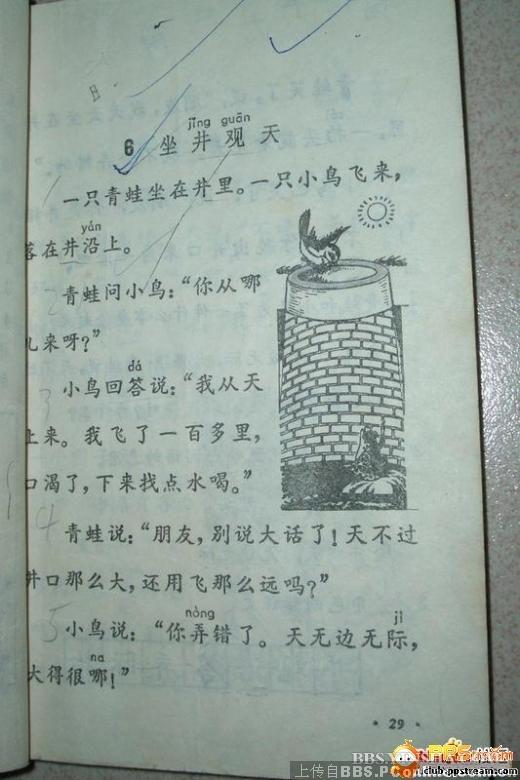 jǐng guān
6 坐井观天
一只青蛙坐在井里。一只小鸟飞来，
yán
落在井沿上。
青蛙问小鸟：“你从哪
儿来呀？”
dá
小鸟回答说：“我从天
上来。我飞了一百多里，
口渴了，下来找点水喝。”
青蛙说：“朋友，别说大话了！天不过
井口那么大，还用飞那么远吗？”
nòng jì
小鸟说：“你弄错了。天无边无际，
na
大得很哪！”
·29·
上传自BBS.P
club.ppstream.com